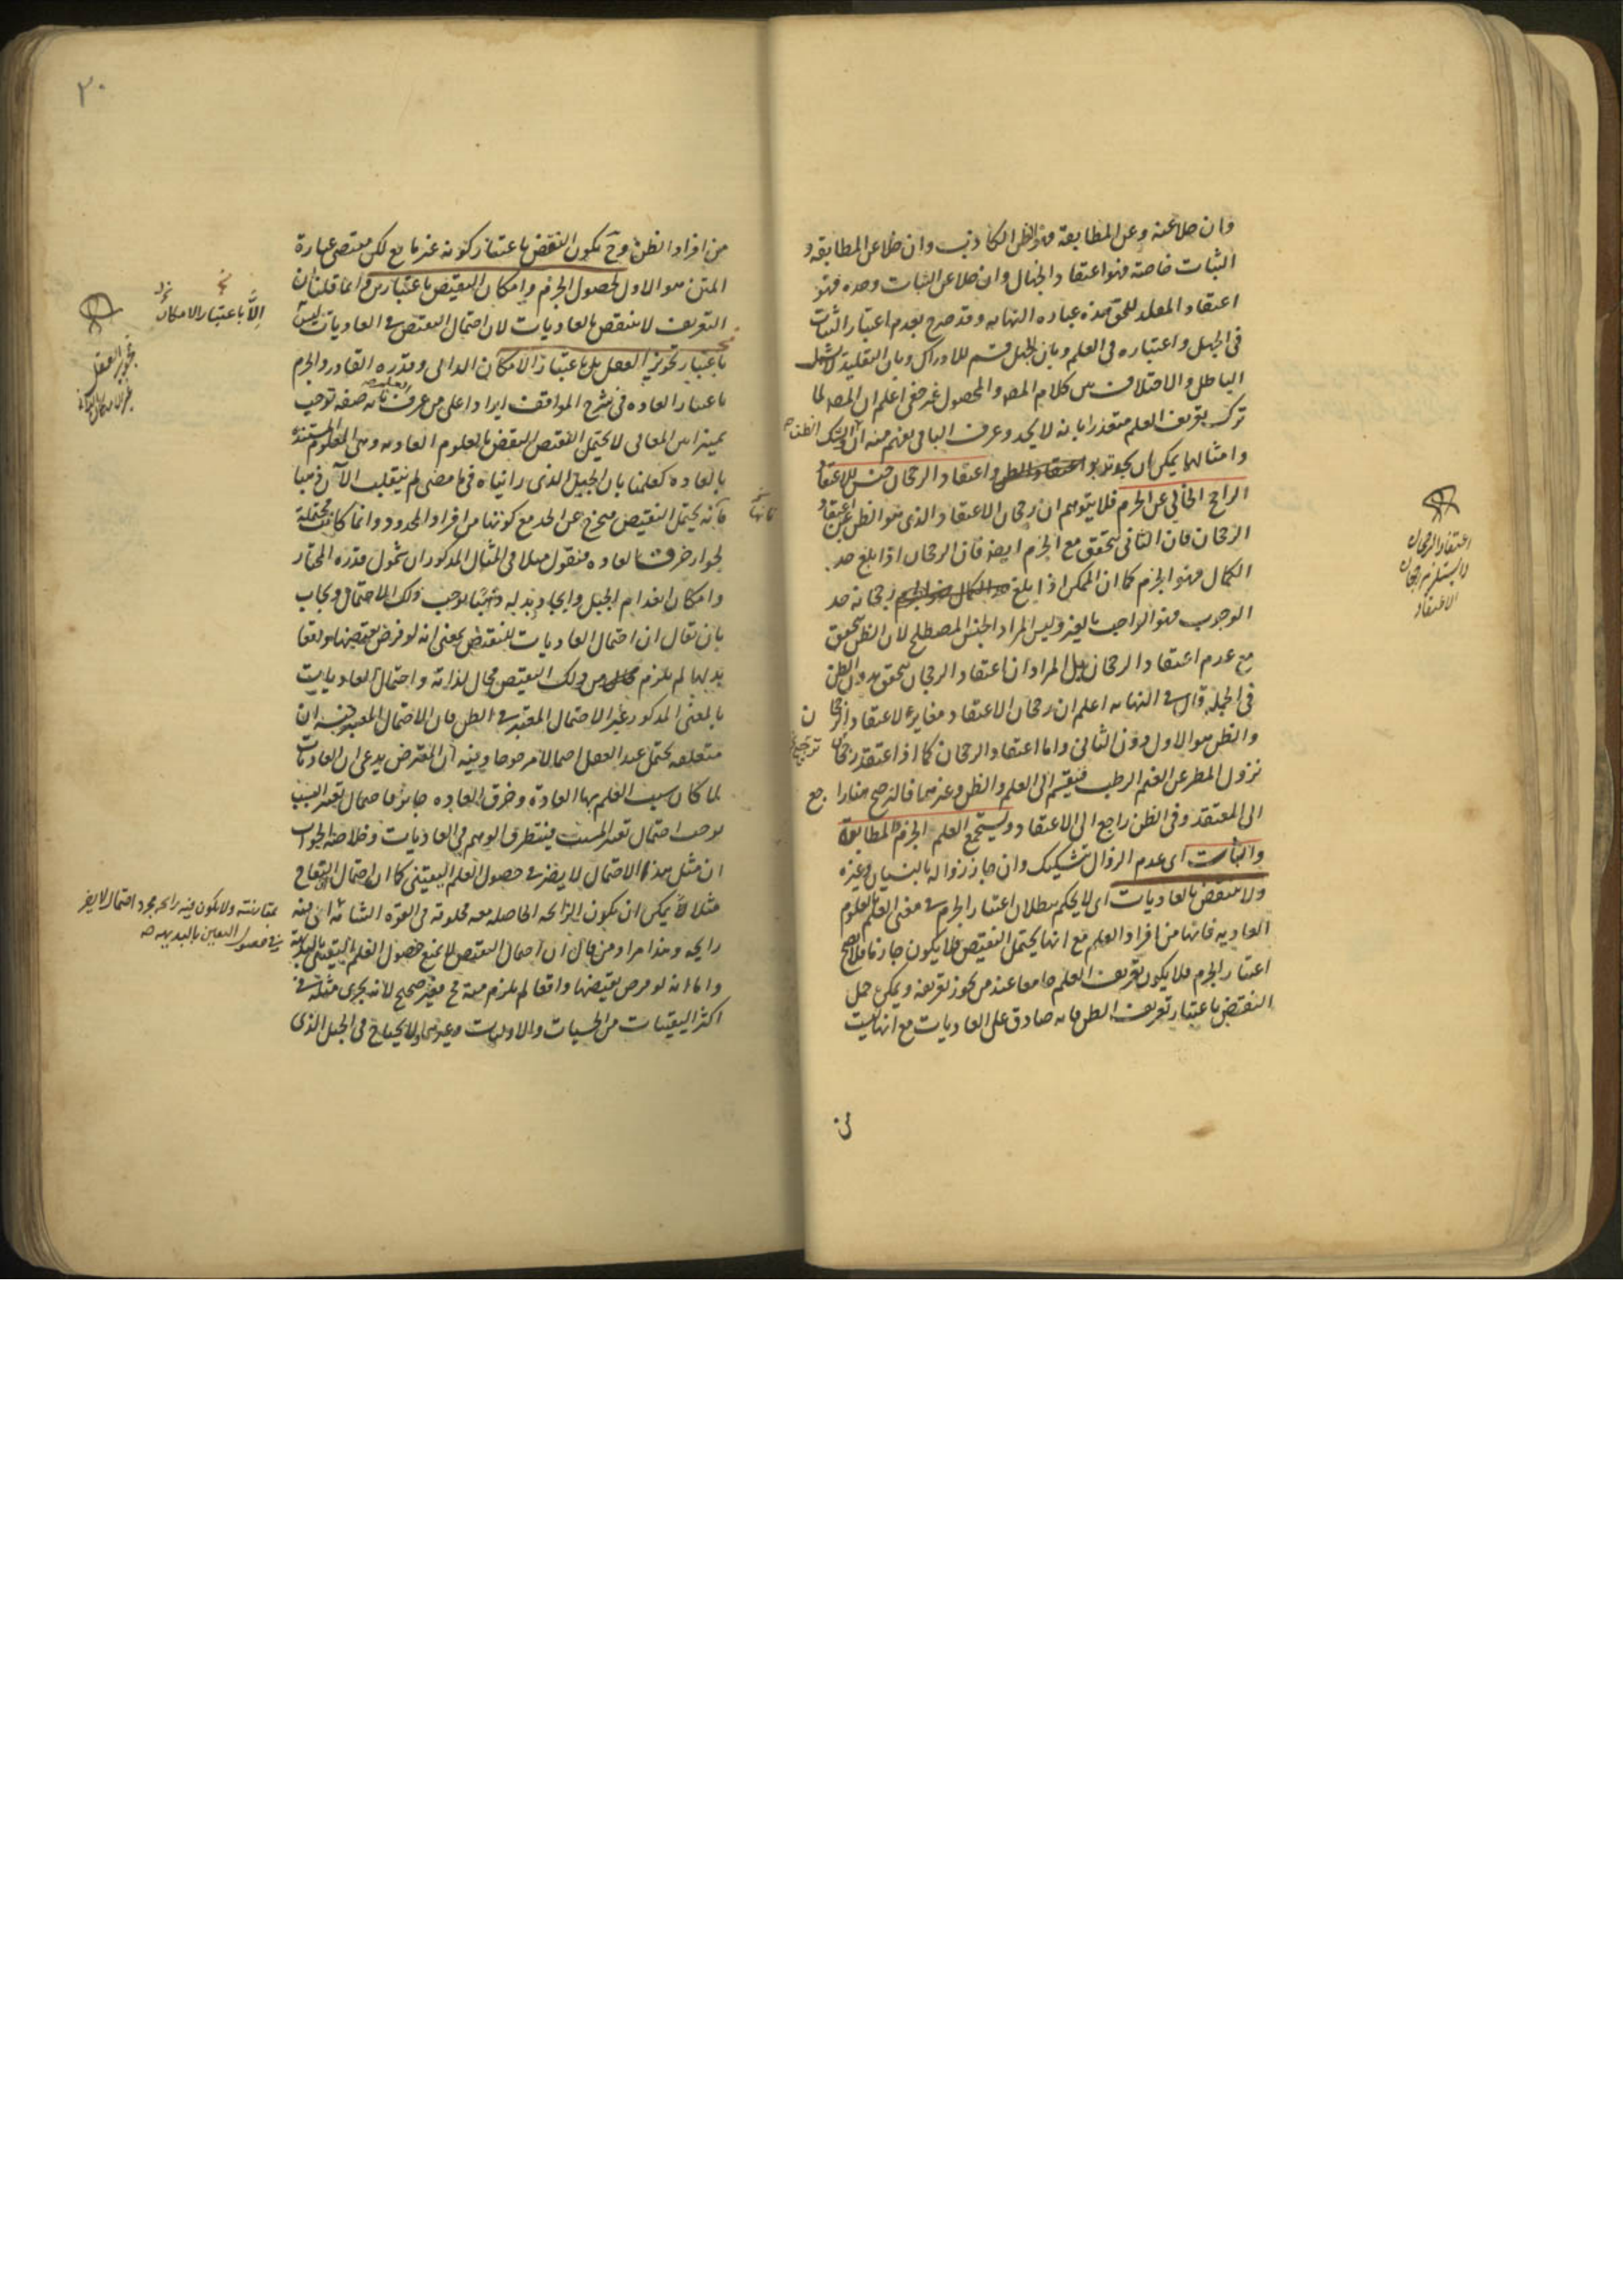 وان خلا عنه وعن المطابقة فهو الظن الكاذب وان خلا عن المطابقة و
الثبات خاصة فهو اعتقاد الجهال وان خلا عن الثبات وحده فهو
اعتقاد المقلد للحق هذه عباره النهايه وقد صرح بعدم اعتبار الثبات
فى الجهل واعتباره فى العلم وبان الجهل قسم للادراك وبان التقليد لا يشمل
الباطل والاختلاف بين كلام المصـ والمحصول غير خفى اعلم ان المصـ لما
ترك تعريف العلم معتذرا بانه لا يحد وعرف الباقى يفهم منه ان الشك
وامثالهما يمكن ان يحد واعتقاد الرجحان جنس للاعتقاد
الراجح الخالى عن الجزم فلا يتوهم ان رجحان الاعتقاد الذى هو الظن غير اعتقاد
الرجحان فان الثانى يتحقق مع الجزم ايضا فان الرجحان اذا بلغ حد
الكمال فهو الجزم كما ان الممكن اذا بلغ رجحانه حد
الوجوب فهو الواجب بالغير وليس المراد الجنس المصطلح لان الظن يتحقق
مع عدم اعتقاد الرجحان بل المراد ان اعتقاد الرجحان يتحقق بدون الظن
فى الجمله قال فى النهايه اعلم ان رجحان الاعتقاد مغاير لاعتقاد الرجحان
والظن هو الاول دون الثانى واما اعتقاد الرجحان كما اذا اعتقد رجحان
نزول المطر عن الغيم الرطب فينقسم الى العلم والظن وغيرهما فالترجيح هنا راجع
الى المعتقد وفى الظن راجع الى الاعتقاد ويستجمع العلم الجزم والمطابقة
والثبات اى عدم الزوال بتشكيك وان جاز زواله بالنسيان وغيره
ولا ينتقض بالعاديات اى لا يحكم ببطلان اعتبار الجزم فى معنى العلم بالعلوم
العاديه فانها من افراد العلم مع انها يحتمل النقيض فلا يكون جازما فلا يصح
اعتبار الجزم فلا يكون تعريف العلم جامعا عند من يجوز تعريفه ويمكن حمل
النقض باعتبار تعريف الظن فانه صادق على العاديات مع انها ليست
من
اعتقاد الرجحان
لا يستلزم رجحان
الاعتقاد
٢٠
من افراد الظن وح يكون النقض باعتبار كونه غير مانع لكن مقتضى عبارة
المتن هو الاول لحصول الجزم وامكان النقيض باعتبارين وانما قلنا ان
التعريف لا ينتقض بالعاديات لان احتمال النقيض فى العاديات ليس
باعتبار تجويز العقل بل باعتبار الامكان الذاتى وقدره القادر والجزم
باعتبار العاده فى شرح المواقف ايراد اعلى من عرف العلم بانه صفه توجب
تميزا بين المعانى لا يحتمل النقيض النقض بالعلوم العاديه وهى العلوم المستندة
بالعاده كعلمنا بان الجبل الذى رايناه فى ما مضى لم ينقلب الآن ذهبا
فانه يحتمل النقيض فيخرج عن الحد مع كونها من افراد المحدود وانما كانت محتملة
لجواز خرق العاده فنقول مثلا فى المثال المذكور ان شمول قدره المختار
وامكان انعدام الجبل وايجاد بدله ذهبا يوجب ذلك الاحتمال ويجاب
بان يقال ان احتمال العاديات للنقيض بمعنى انه لو فرض نقيضها واقعا
بدلها لم يلزم من ذلك النقيض محال لذاته واحتمال العاديات
بالمعنى المذكور غير الاحتمال المعتبر فى الظن فان الاحتمال المعتبر فيه ان
متعلقه يحتمل عند العقل احتمالا مرجوحا وفيه ان المعترض يدعى ان العاديات
لما كان سبب العلم بها العادة وخرق العاده جائز فاحتمال تغير السبب
يوجب احتمال تغير المسبب فيتطرق الوهم فى العاديات وخلاصة الجواب
ان مثل هذا الاحتمال لا يضر فى حصول العلم اليقينى كما ان احتمال التفاح
مثلا لأ يمكن ان يكون الرائحه الحاصله معه مخلوقه فى القوة الشامه اى فيه
رايحه وهذا مراد من قال ان احتمال النقيض لا يمنع حصول العلم اليقينى بالبديهة
واما انه لو فرض نقيضها واقعا لم يلزم منه مح فغير صحيح لانه يجرى مثله فى
اكثر اليقينيات من الحسيات والاوليات وغيرهما ولا يحتاج فى الجبل الذى
إلاّ باعتبار الامكان
تجويز العقل
بمقارنته ولا يكون فيه رائحه مجرد احتمال لا يضر
فى حصول اليقين بالبديهه صح